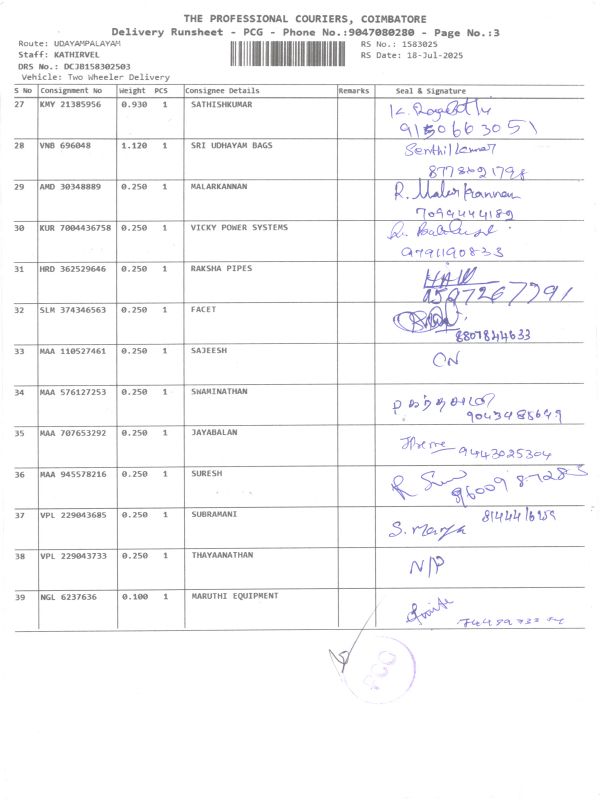 THE PROFESSIONAL COURIERS, COIMBATORE
Delivery Runsheet - PCG - Phone No.:9047080280 - Page No.:3
Route: UDAYAMPALAYAM RS No.: 1583025
Staff: KATHIRVEL RS Date: 18-Jul-2025
DRS No.: DCJB158302503
Vehicle: Two Wheeler Delivery
S No Consignment No Weight PCS Consignee Details Remarks Seal & Signature
27 KMY 21385956 0.930 1 SATHISHKUMAR
9150663051
28 VNB 696048 1.120 1 SRI UDHAYAM BAGS Senthilkumar
29 AMD 30348889 0.250 1 MALARKANNAN R. Malarkannan
7094444189
30 KUR 7004436758 0.250 1 VICKY POWER SYSTEMS
9791190833
31 HRD 362529646 0.250 1 RAKSHA PIPES
32 SLM 374346563 0.250 1 FACET
8807844633
33 MAA 110527461 0.250 1 SAJEESH CN
34 MAA 576127253 0.250 1 SWAMINATHAN
35 MAA 707653292 0.250 1 JAYABALAN 9443025304
36 MAA 945578216 0.250 1 SURESH
37 VPL 229043685 0.250 1 SUBRAMANI
38 VPL 229043733 0.250 1 THAYAANATHAN N/P
39 NGL 6237636 0.100 1 MARUTHI EQUIPMENT
PCO